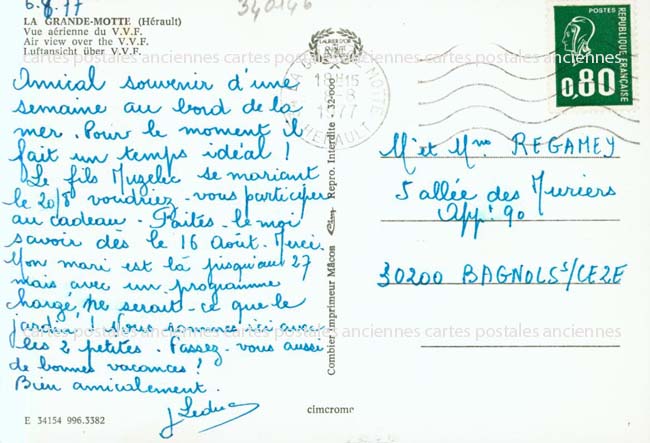 6.8.77
340146
LA GRANDE-MOTTE (Hérault)
Vue aérienne du V.V.F.
Air view over the V.V.F.
Luftansicht über V.V.F.
Amical souvenir d'une
semaine au bord de la
mer. Pour le moment il
fait un temps idéal !
Le fils Muzelec se mariant
le 20/8 voudriez-vous participer
au cadeau. Faites-le moi
savoir dès le 16 Août. Merci.
Mon mari est là jusqu'au 27
mais avec un programme
chargé, ne serait-ce que le
jardin ! Nous sommes ici avec
les 2 petites. Passez-vous aussi
de bonnes vacances !
Bien amicalement.
J Leduc
E 34154 996.3382
Combier Imprimeur Mâcon
Repro. Interdite - 32-000
cimcrome
LA GRANDE MOTTE
18H15
-8
1977
HERAULT
POSTES
REPUBLIQUE FRANÇAISE
0,80
M. et Mme REGAMEY
5 allée des Muriers
Appt 90
30200 BAGNOLS s/CEZE
cartes postales anciennes cartes postales anciennes cartes postales anciennes
cartes postales anciennes cartes postales anciennes cartes postales anciennes